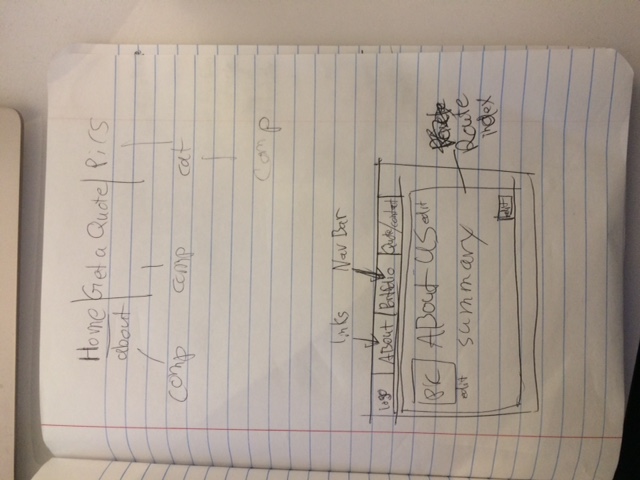 Home Get a Quote Pics
about
comp comp cat
comp
links Nav Bar
logo About Portfolio Quote/contact
pic About US edit
edit
summary
Route
index
edit